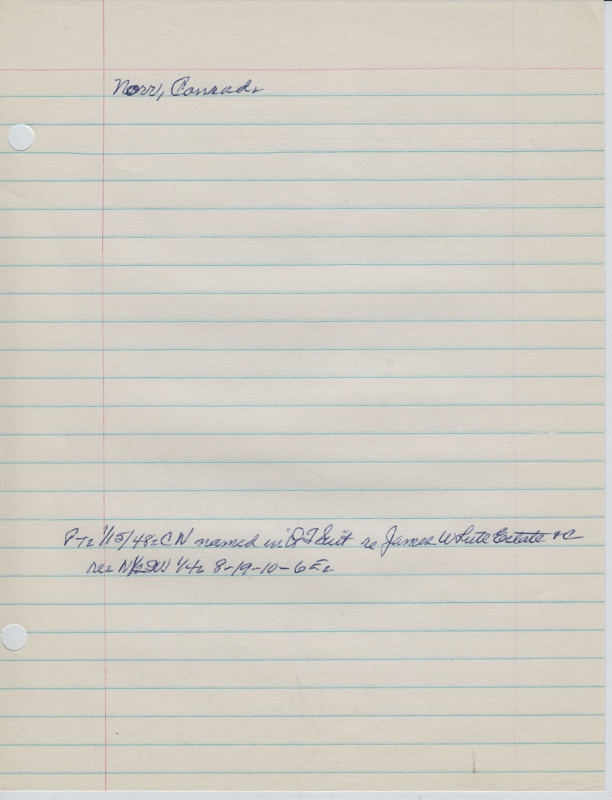 Norr, Conrad.
PT. 1/15/48. CN named in QT Suit re James White Estate &c
re. N 1/2 SW 1/4. 8-19-10-6E.